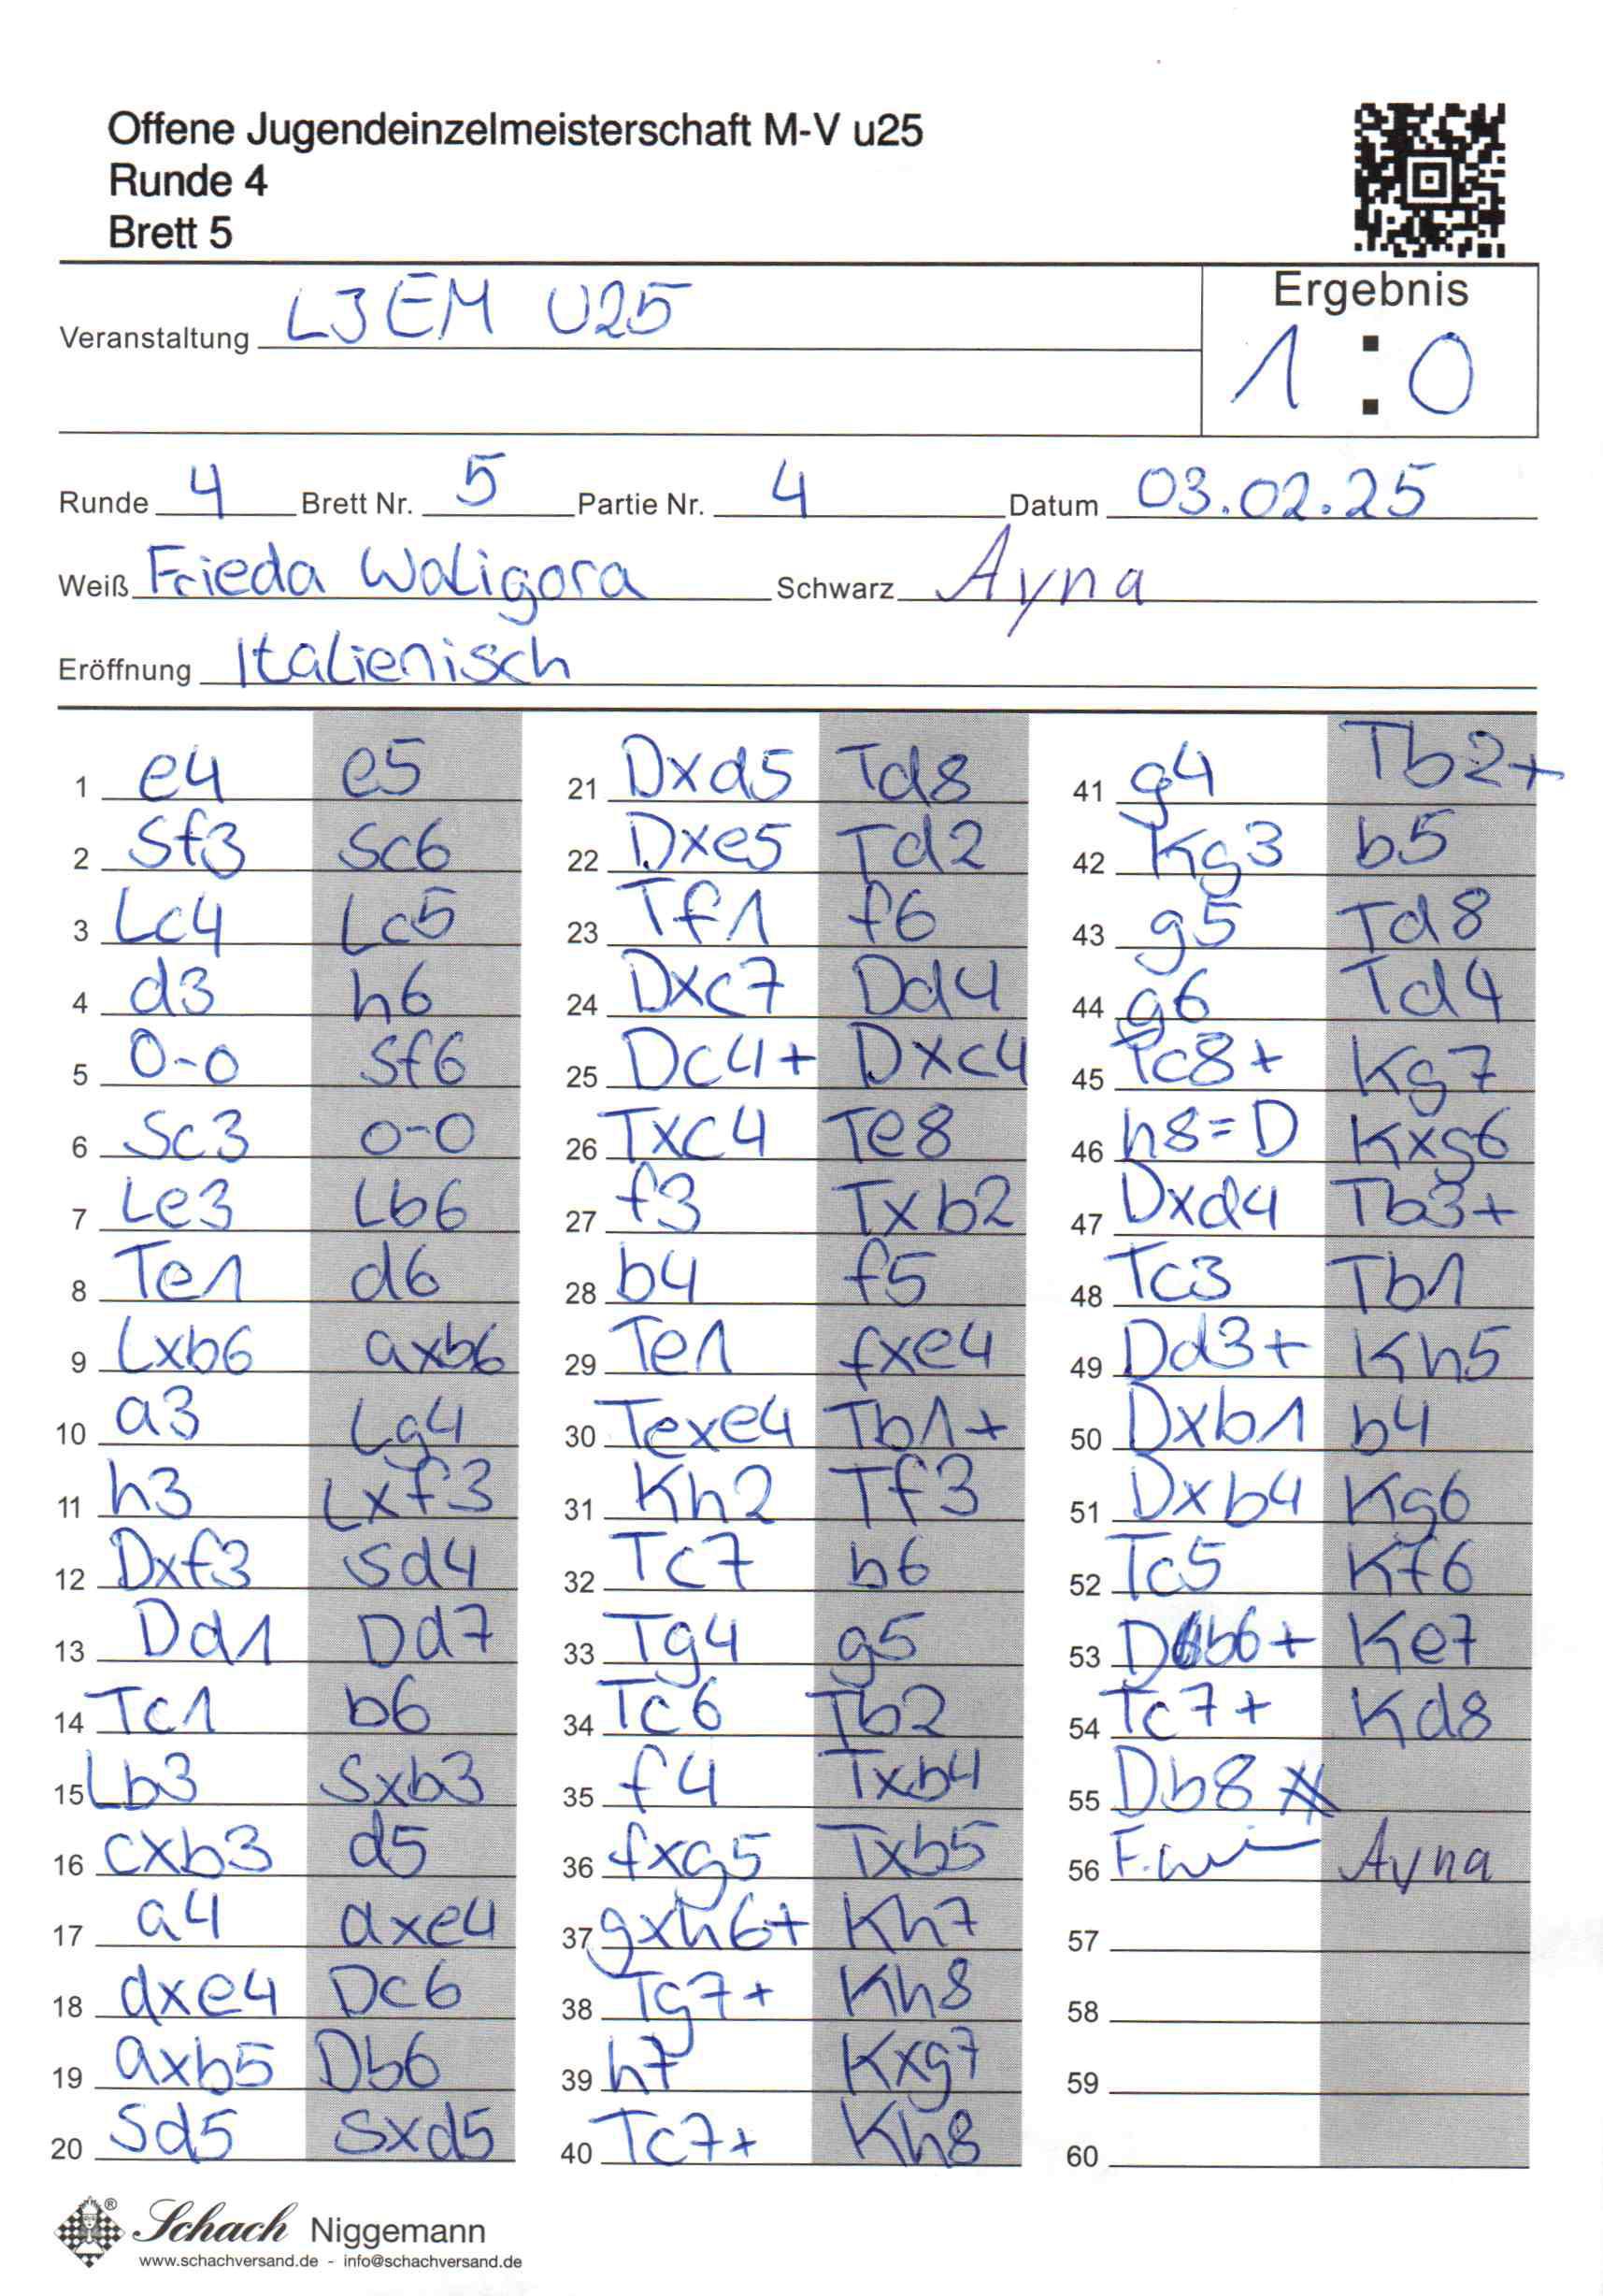 Offene Jugendeinzelmeisterschaft M-V u25
Runde 4
Brett 5
Ergebnis
Veranstaltung LJEM U25
1 : 0
Runde 4 Brett Nr. 5 Partie Nr. 4 Datum 03.02.25
Weiß Frieda Waligora Schwarz Ayna
Eröffnung Italienisch
1 e4 e5
2 Sf3 Sc6
3 Lc4 Lc5
4 d3 h6
5 0-0 Sf6
6 Sc3 0-0
7 Le3 Lb6
8 Te1 d6
9 Lxb6 axb6
10 a3 Lg4
11 h3 Lxf3
12 Dxf3 Sd4
13 Dd1 Dd7
14 Tc1 b6
15 Lb3 Sxb3
16 cxb3 d5
17 a4 dxe4
18 dxe4 Dc6
19 axb5 Db6
20 Sd5 Sxd5
21 Dxd5 Td8
22 Dxe5 Td2
23 Tf1 f6
24 Dxc7 Dd4
25 Dc4+ Dxc4
26 Txc4 Te8
27 f3 Txb2
28 b4 f5
29 Te1 fxe4
30 Texe4 Tb1+
31 Kh2 Tf3
32 Tc7 b6
33 Tg4 g5
34 Tc6 Tb2
35 f4 Txb4
36 fxg5 Txb5
37 gxh6+ Kh7
38 Tg7+ Kh8
39 h7 Kxg7
40 Tc7+ Kh8
41 g4 Tb2+
42 Kg3 b5
43 g5 Td8
44 g6 Td4
45 Tc8+ Kg7
46 h8=D Kxg6
47 Dxd4 Tb3+
48 Tc3 Tb1
49 Dd3+ Kh5
50 Dxb1 b4
51 Dxb4 Kg6
52 Tc5 Kf6
53 Db6+ Ke7
54 Tc7+ Kd8
55 Db8#
56 Ayna
57
58
59
60
Schach Niggemann
www.schachversand.de - info@schachversand.de